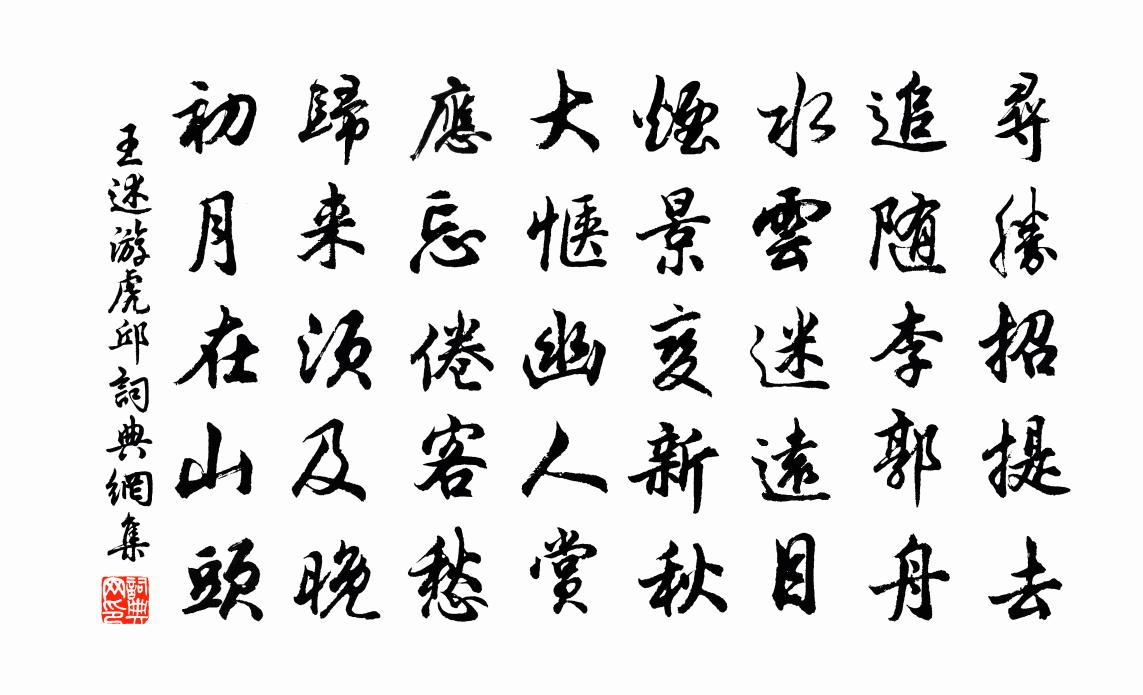 尋勝招提去
追随李郭舟
水雲迷遠目
煙景変新秋
大惬幽人賞
應忘倦客愁
歸来須及晚
初月在山頭
王述游虎邱詞典網集
詞典网印